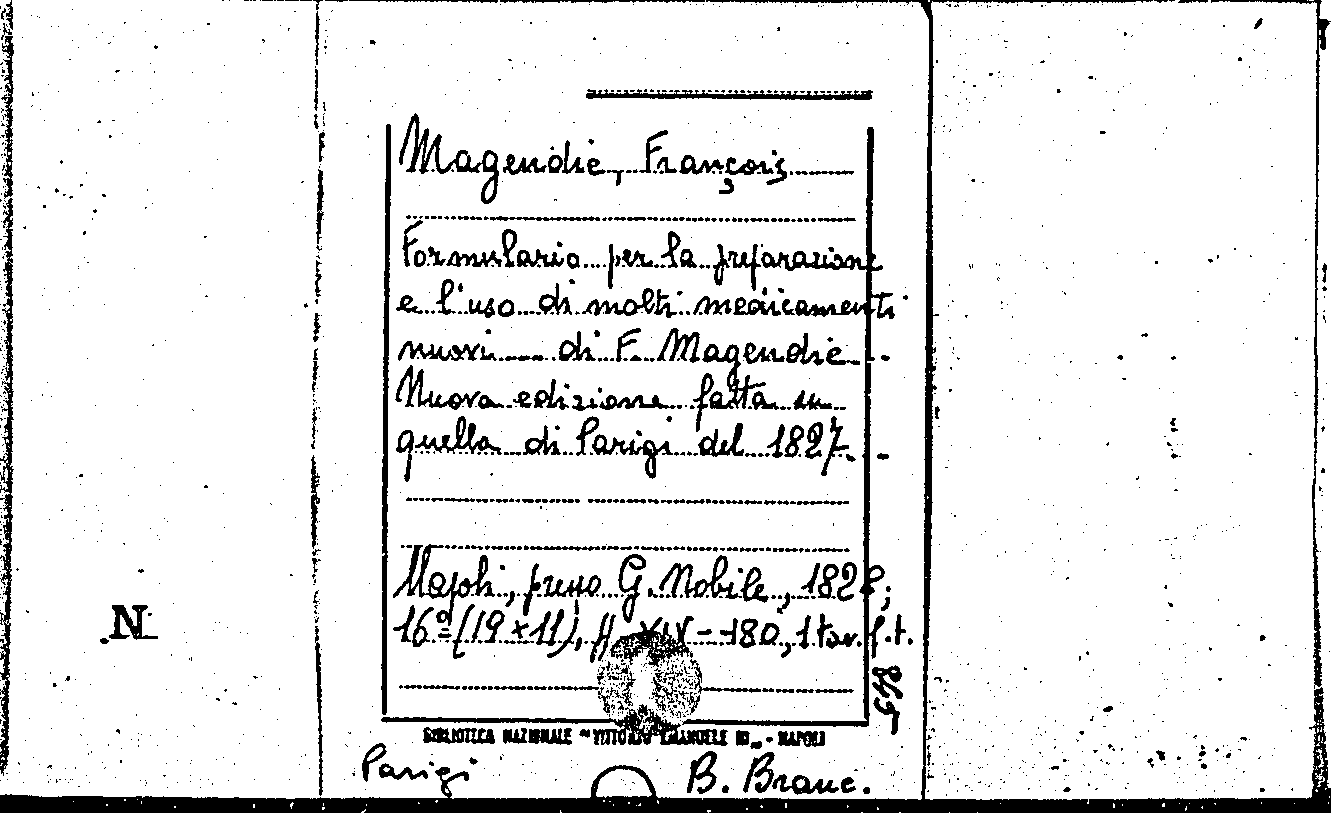 Magendie, François
Formulario per la preparazione
e l'uso di molti medicamenti
nuovi... di F. Magendie..
Nuova edizione fatta su
quella di Parigi del 1827..
Napoli, presso G. Nobile, 1828;
16º (19 x 11), pp. XIV-180, 1 tav. f.t.
BIBLIOTECA NAZIONALE "VITTORIO EMANUELE III" - NAPOLI
Parigi B. Branc.
N